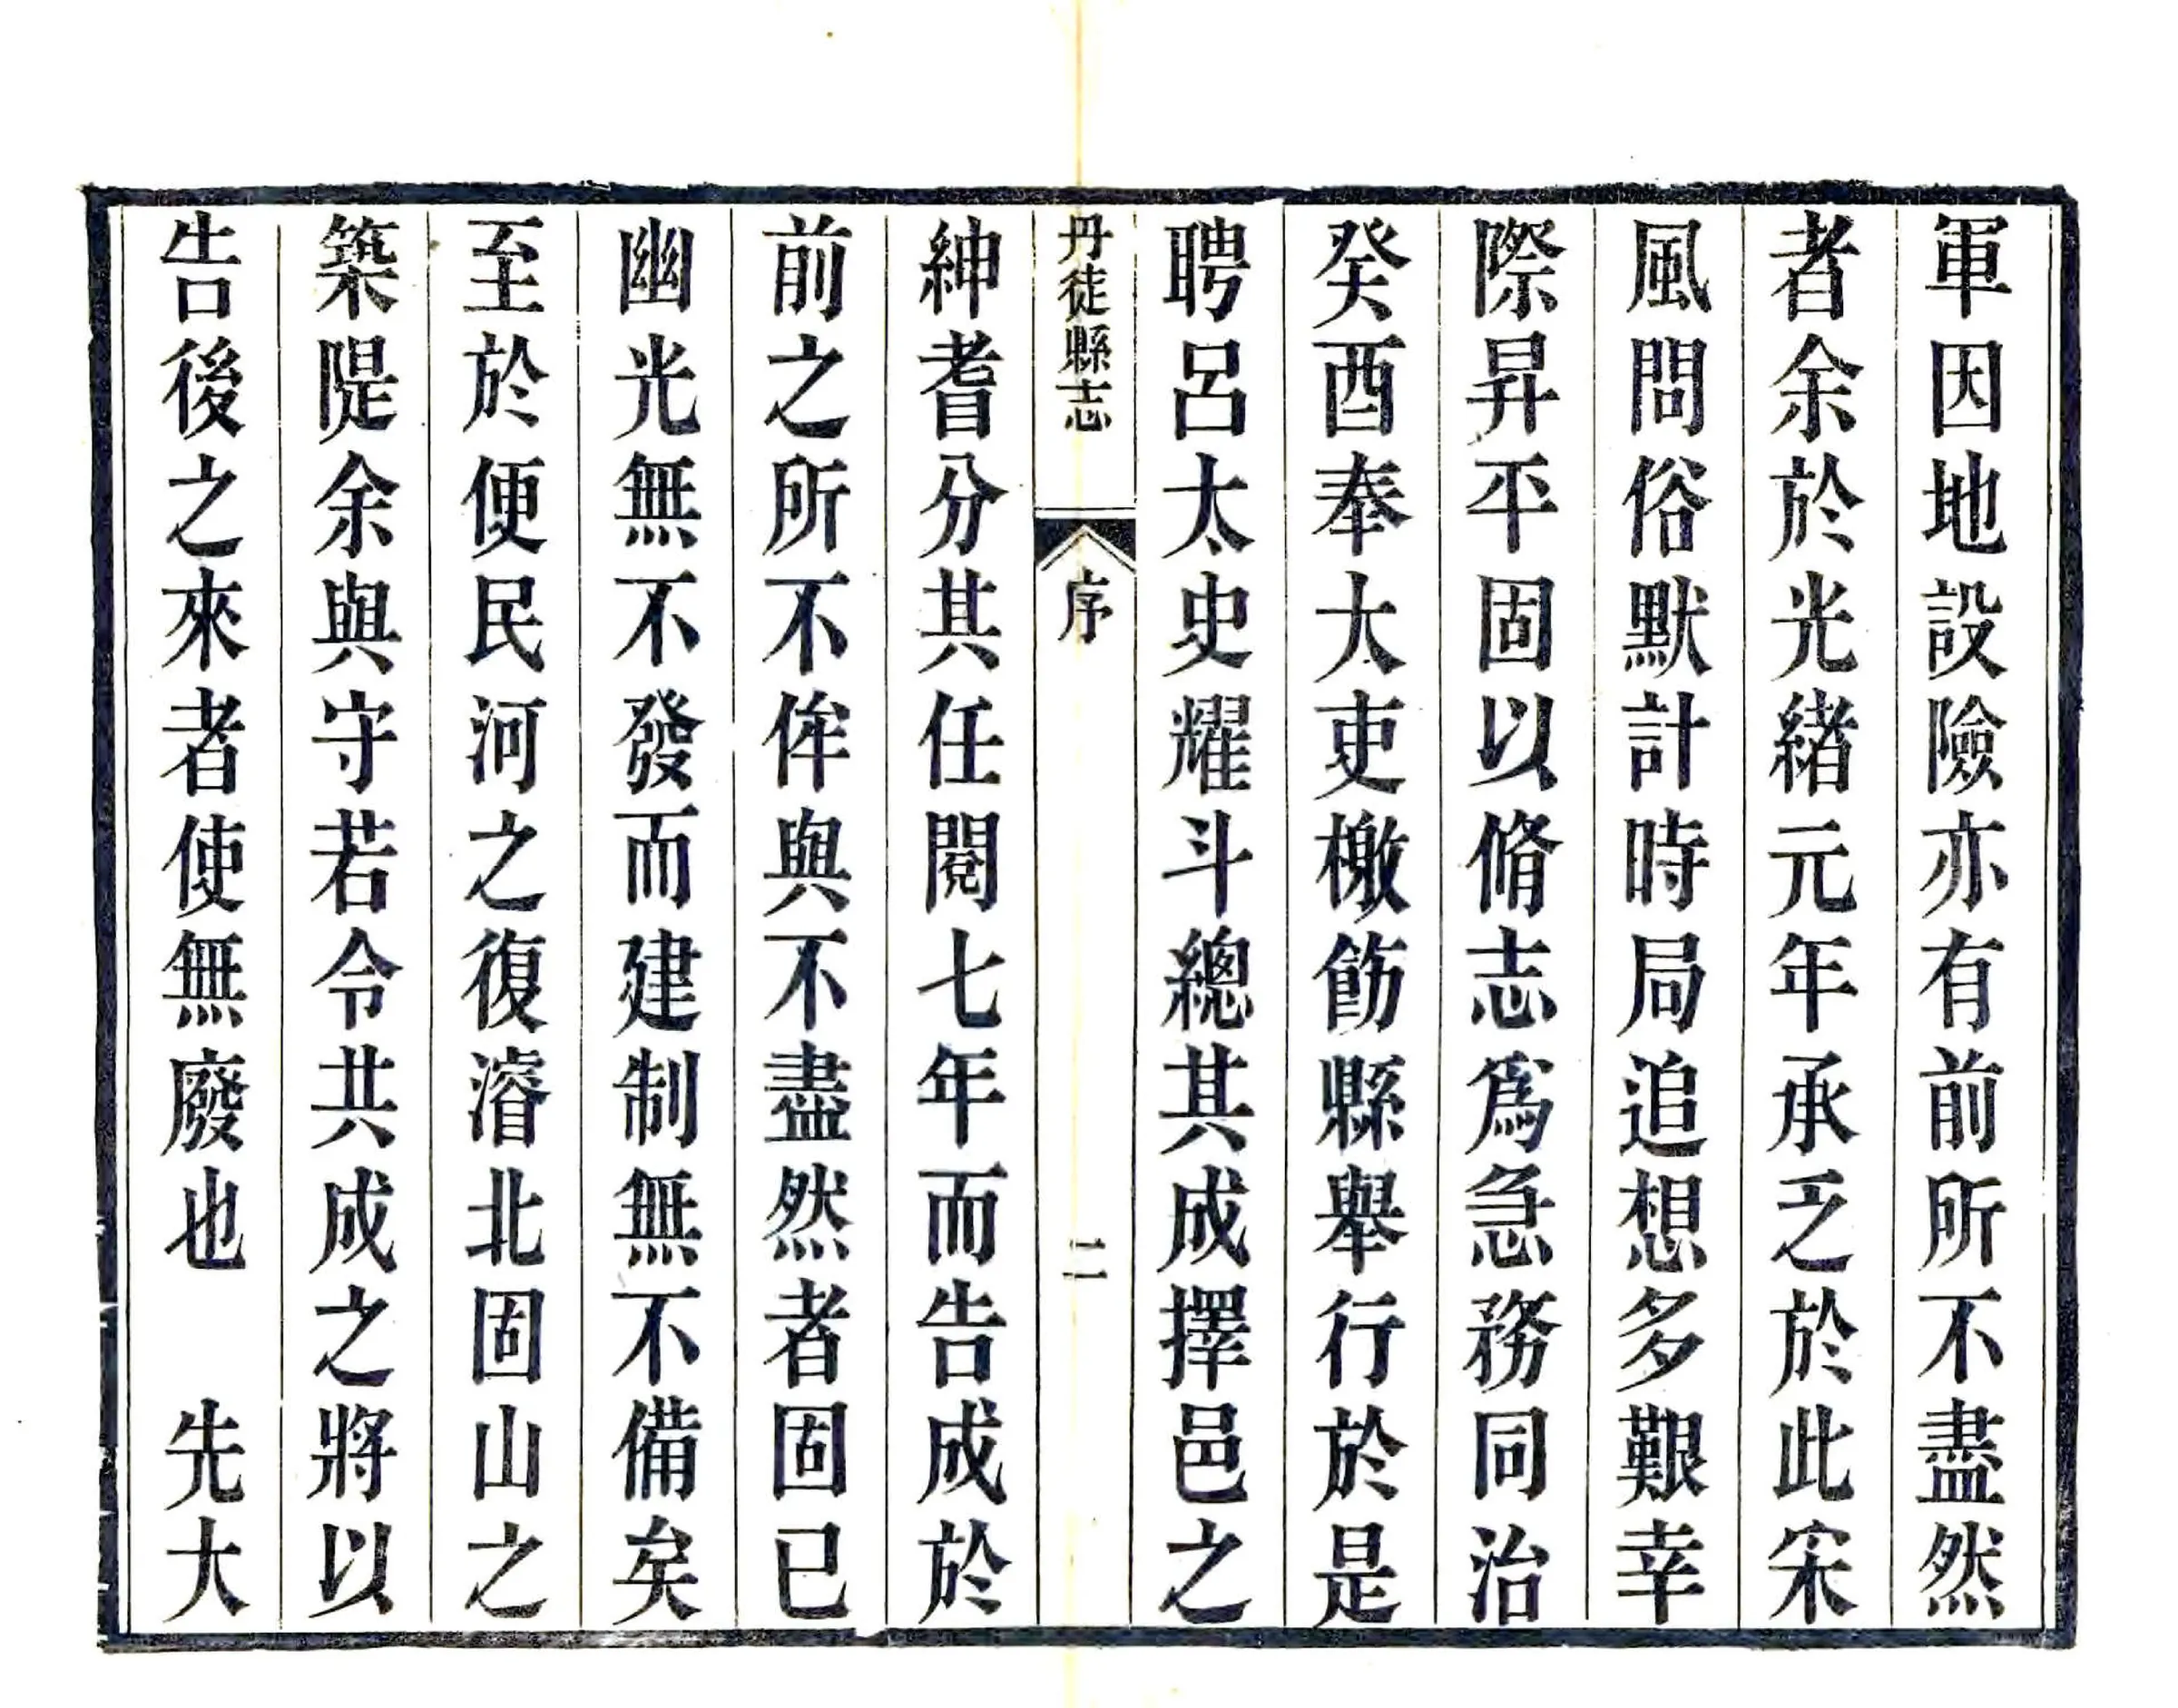 軍因地設險亦有前所不盡然
者余於光緒元年承乏於此宷
風問俗默計時局追想多艱幸
際昇平固以脩志爲急務同治
癸酉奉大吏檄飭縣舉行於是
聘呂太史耀斗總其成擇邑之
丹徒縣志
序
二
紳耆分其任閱七年而告成於
前之所不侔與不盡然者固已
幽光無不發而建制無不備矣
至於便民河之復濬北固山之
築隄余與守若令共成之將以
告後之來者使無廢也　先大